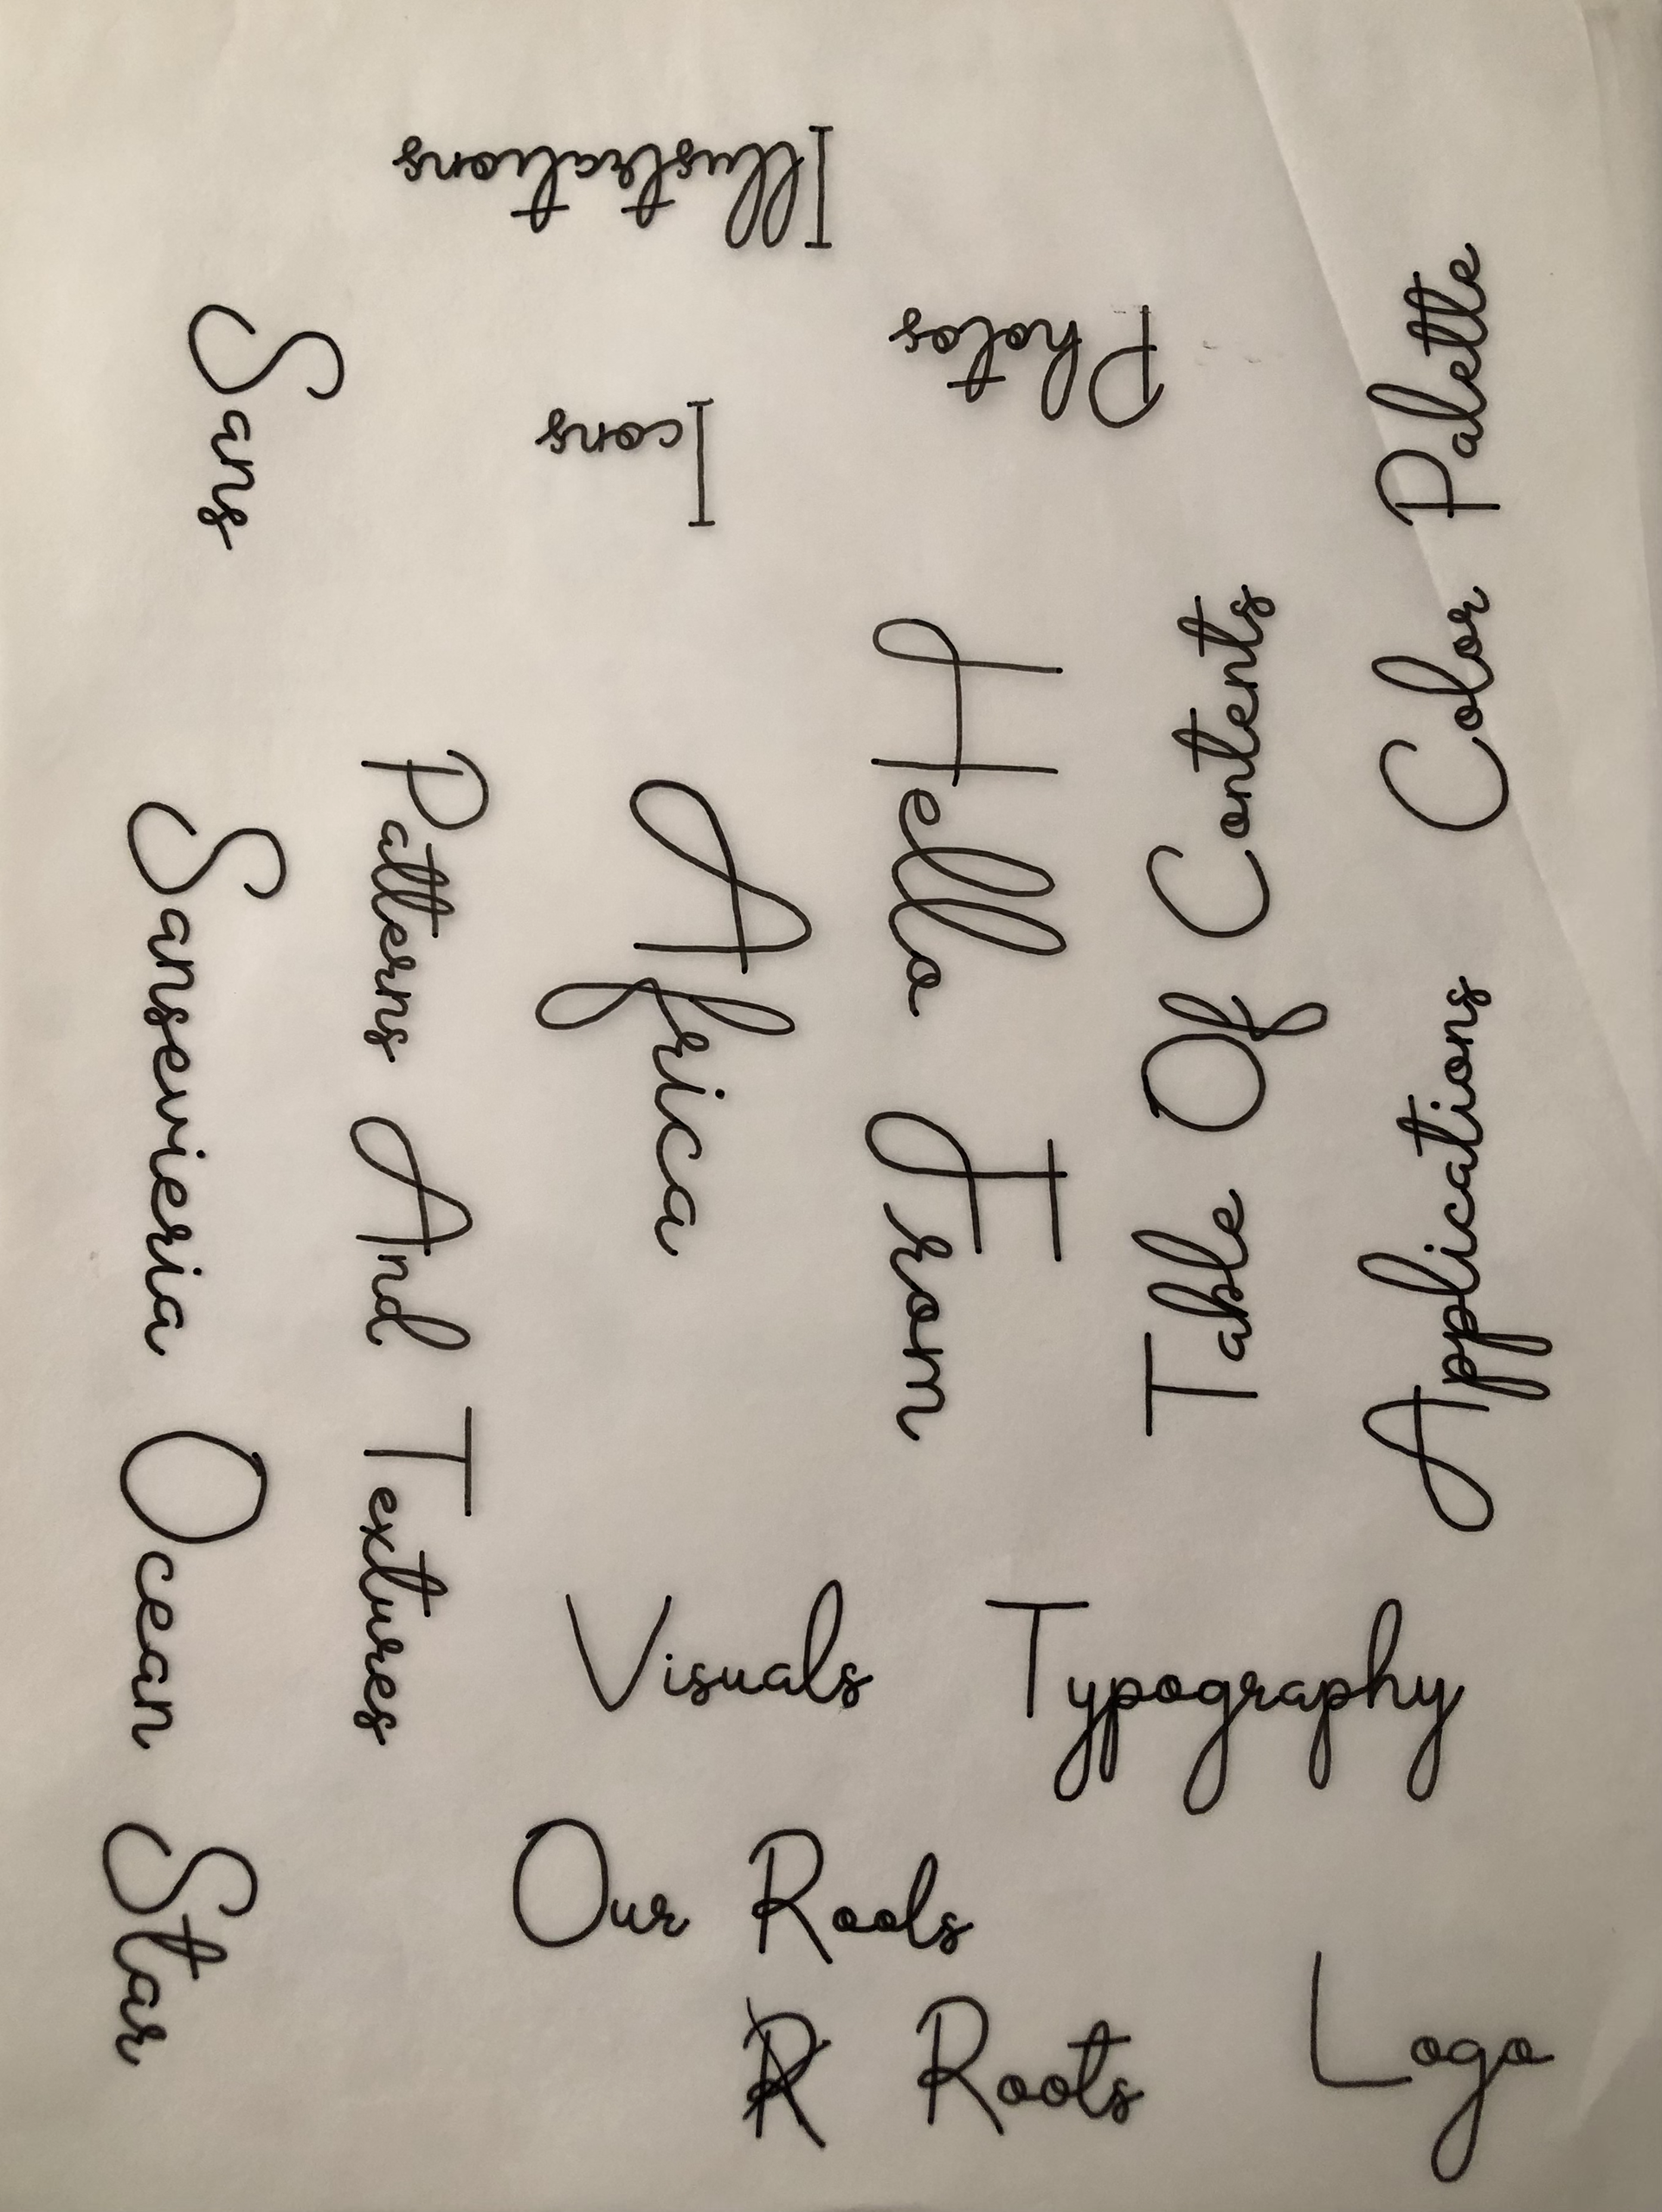 Illustrations
Photos
Icons
Sans
Color Palette
Table Of Contents
Applications
Hello From
Africa
Patterns And Textures
Sansevieria Ocean Star
Visuals
Typography
Our Rools
R Roots
Logo